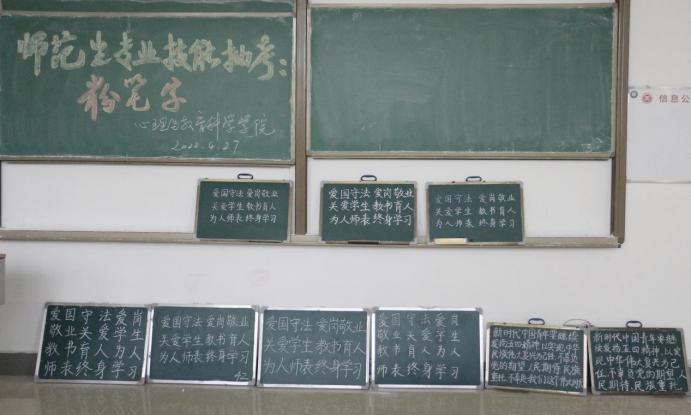 师范生专业技能抽考:
粉笔字
心理与教育科学学院
2022.4.27
信息公
爱国守法 爱岗敬业
关爱学生 教书育人
为人师表 终身学习
爱国守法 爱岗敬业
关爱学生 教书育人
为人师表 终身学习
爱国守法 爱岗敬业
关爱学生 教书育人
为人师表 终身学习
爱国守法爱岗
敬业关爱学生
教书育人为人
师表终身学习
爱国守法 爱岗敬业
关爱学生 教书育人
为人师表 终身学习
42
爱国守法 爱岗敬业
关爱学生 教书育人
为人师表 终身学习
爱国守法爱岗
敬业关爱学生
教书育人为人
师表终身学习
新时代中国青年要继续
发扬五四精神,以实现中华
民族伟大复兴为己任,不辜负
党的期望、人民期待、民族
重托,不辜负我们这个伟大时
新时代中国青年要继
续发扬五四精神,以实
现中华伟大复兴为己
任,不辜负党的期望、
人民期待、民族重托